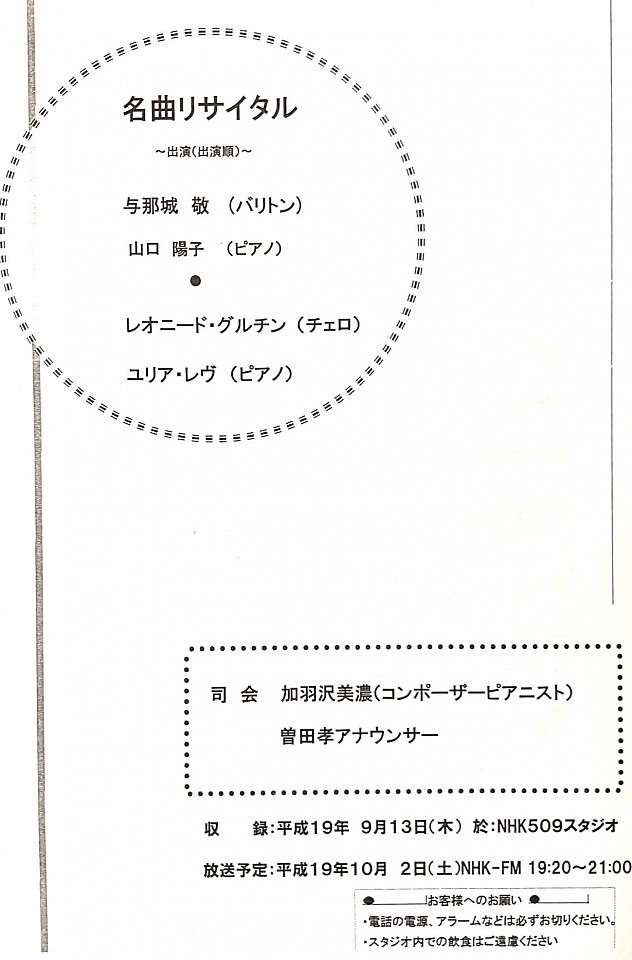 名曲リサイタル
～出演（出演順）～
与那城　敬　（バリトン）
山口　陽子　（ピアノ）
●
レオニード・グルチン（チェロ）
ユリア・レヴ（ピアノ）
司　会　加羽沢美濃（コンポーザーピアニスト）
曽田孝アナウンサー
収　　録：平成１９年　９月１３日（木）　於：NHK５０９スタジオ
放送予定：平成１９年１０月　２日（土）NHK-FM 19:20～21:00
お客様へのお願い
・電話の電源、アラームなどは必ずお切りください。
・スタジオ内での飲食はご遠慮ください